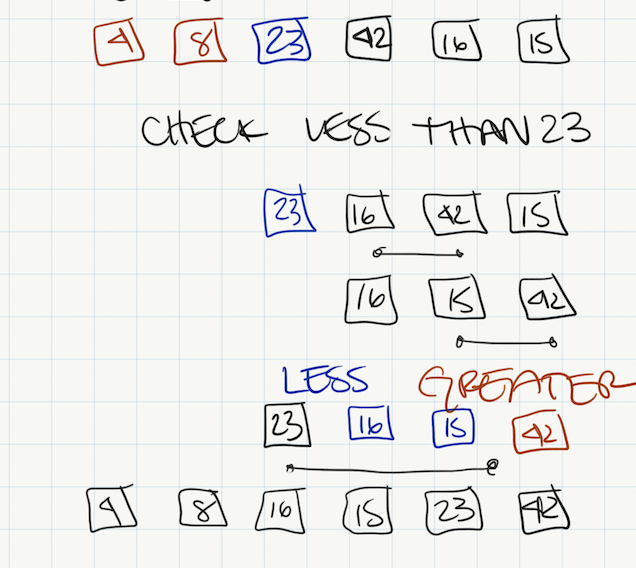 4 8 23 42 16 15
CHECK LESS THAN 23
23 16 42 15
16 15 42
LESS GREATER
23 16 15 42
4 8 16 15 23 42